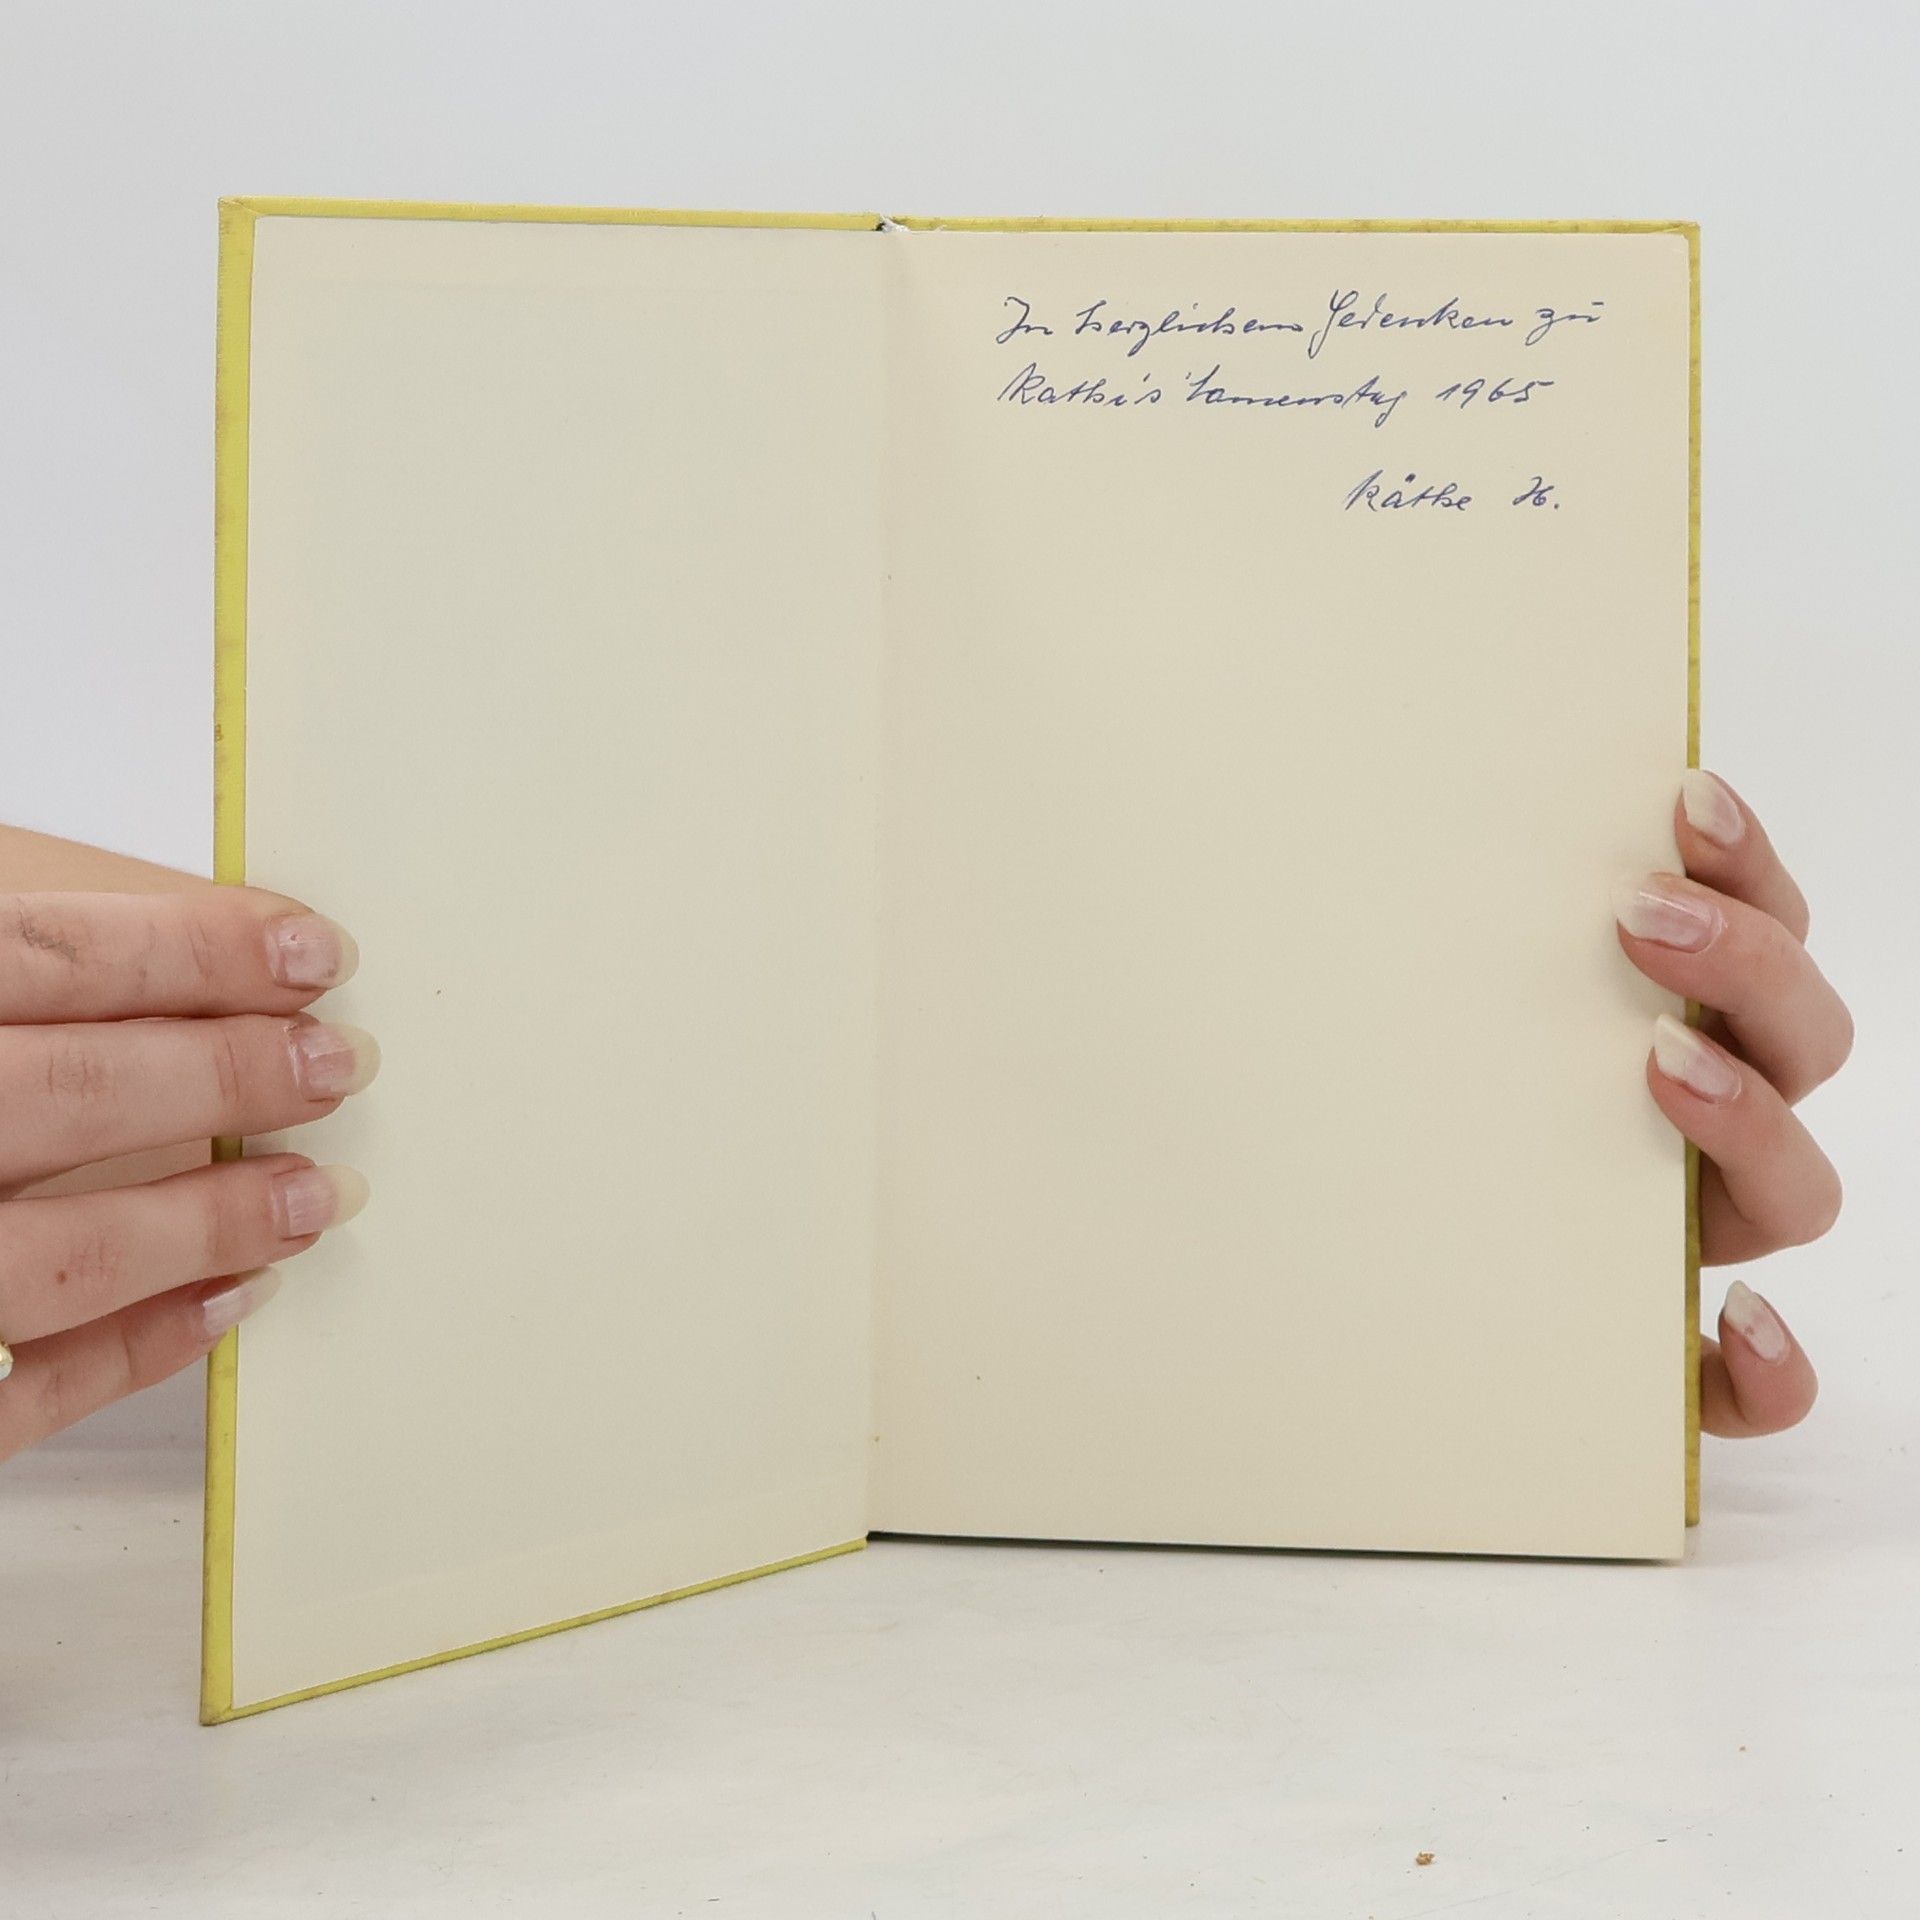 In herzlichem Gedenken zu
Kathi's Namenstag 1965
Käthe H.